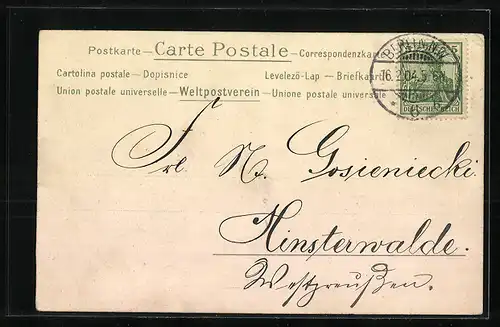 Postkarte — Carte Postale — Correspondenzkarte
Cartolina postale — Dopisnice Levelező-Lap — Briefkaart
Union postale universelle — Weltpostverein — Unione postale universale
BERLIN N.W.
16.2.04.5-6N.
DEUTSCHES REICH
Frl. N. Gosieniecki.
Minsterwalde.
Westpreußen.